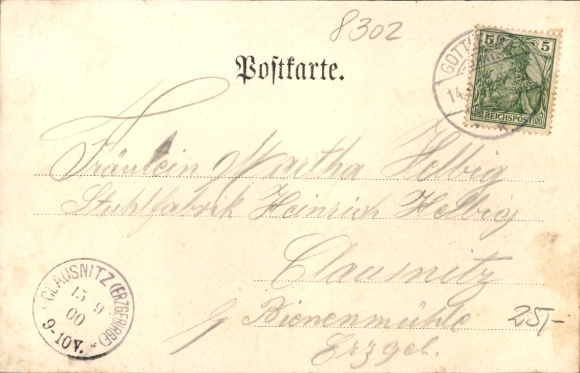 8302
Postkarte.
5 5
REICHSPOST
GOTT
14.
Fräulein Martha Helbig
Stuhlfabrik Heinrich Helbig
Clausnitz
Bienenmühle
Erzgeb.
25,-
CLAUSNITZ (ERZGEBIRGE)
15 9
00
9-10V.